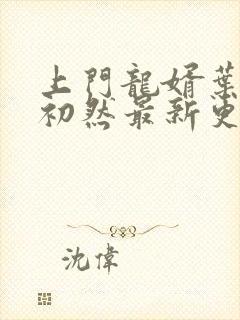 上門龍婿葉
初然最新更
沈偉